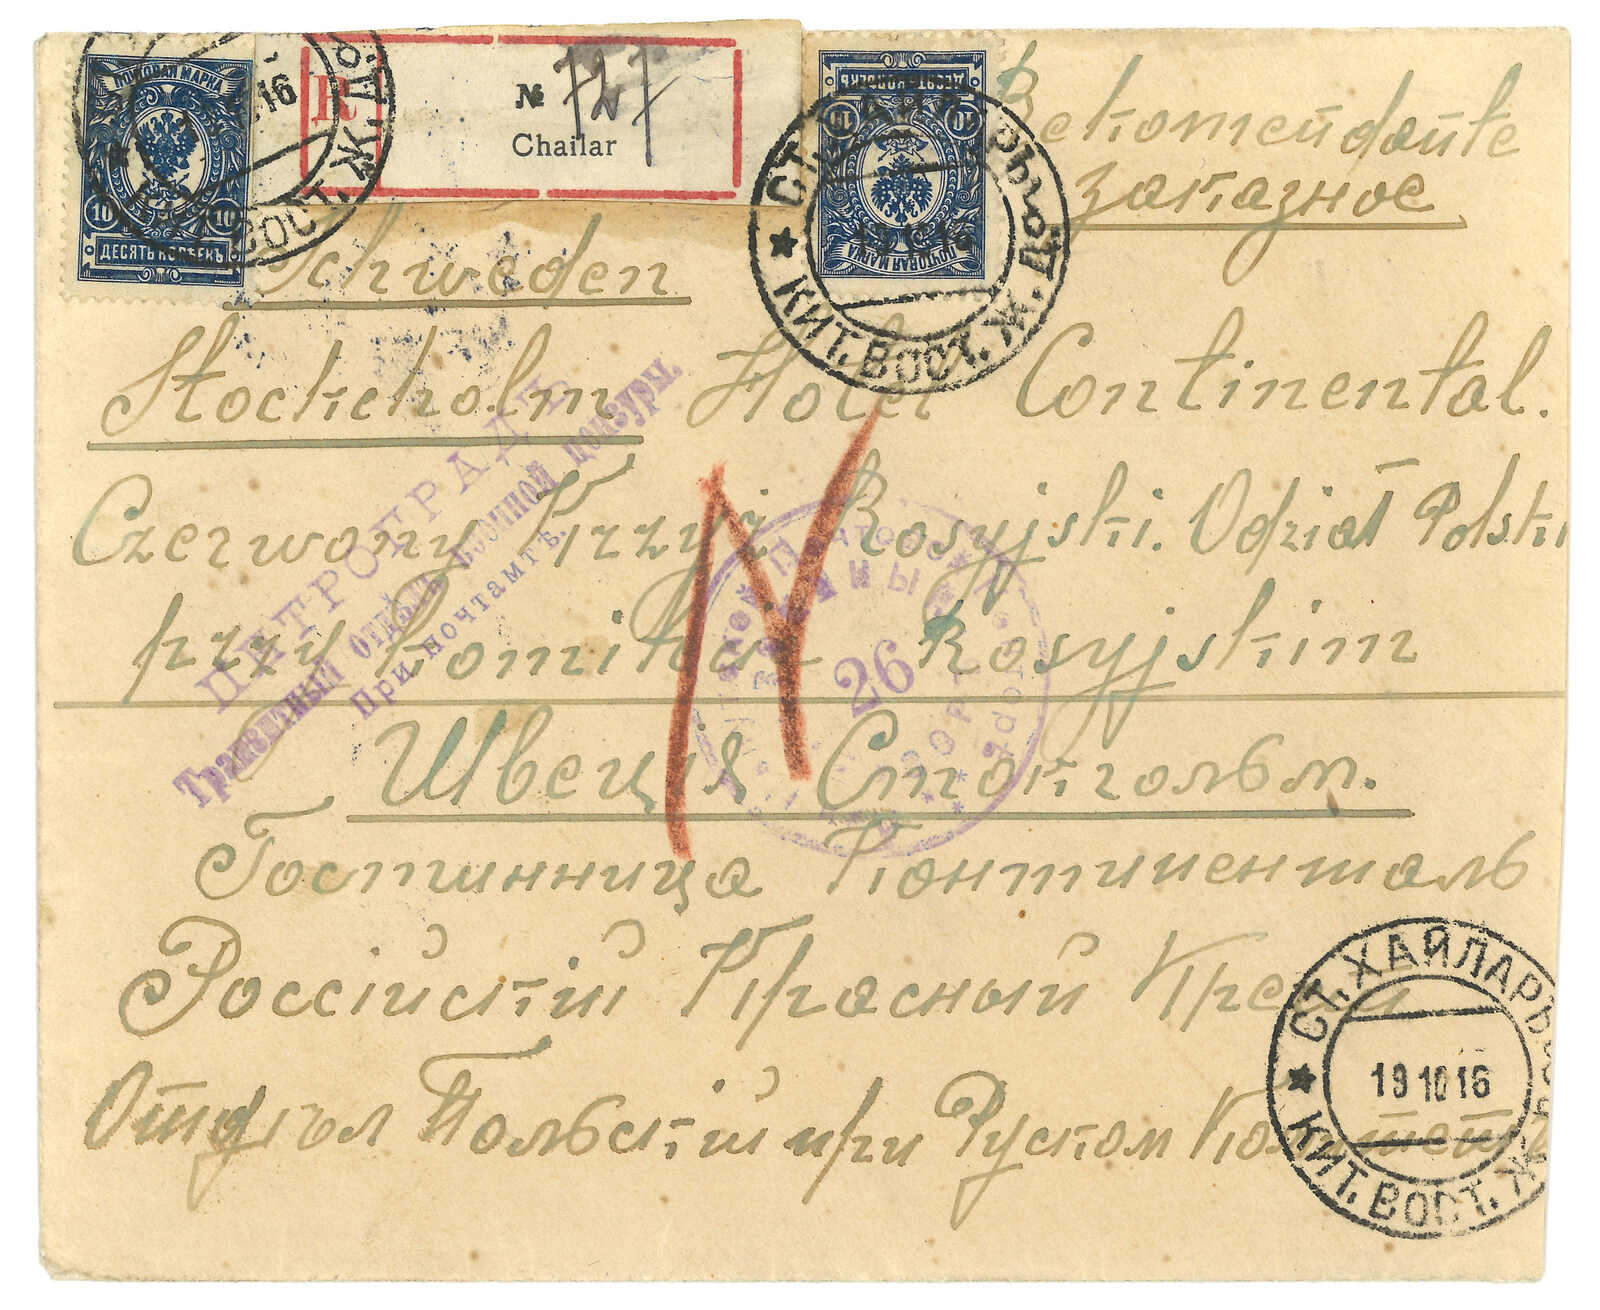 ПОЧТОВАЯ МАРКА
10 10
ДЕСЯТЬ КОПѢЕКЪ
16
ВОСТ. Ж. Д.
R
№ 727
Chailar
ДЕСЯТЬ КОПѢЕКЪ
10 10
ПОЧТОВАЯ МАРКА
КИТ. ВОСТ. Ж. Д.
Rekomendante
заказное
Schweden
Stockcholm Hotel Continental.
Czerwony Krzyż Rosyjski. Odział Polski
przy Komitecie Rosyjskim
ПЕТРОГРАДЪ
Транзитный отдѣлъ военной цензуры.
При почтамтѣ.
26
Швеція Стокгольм.
Гостинница Континенталь
Россійскій Красный Крест
Отдѣлъ Польскій при Руском Комитетѣ
СТ. ХАЙЛАРЪ
19 10 16
КИТ. ВОСТ. Ж. Д.